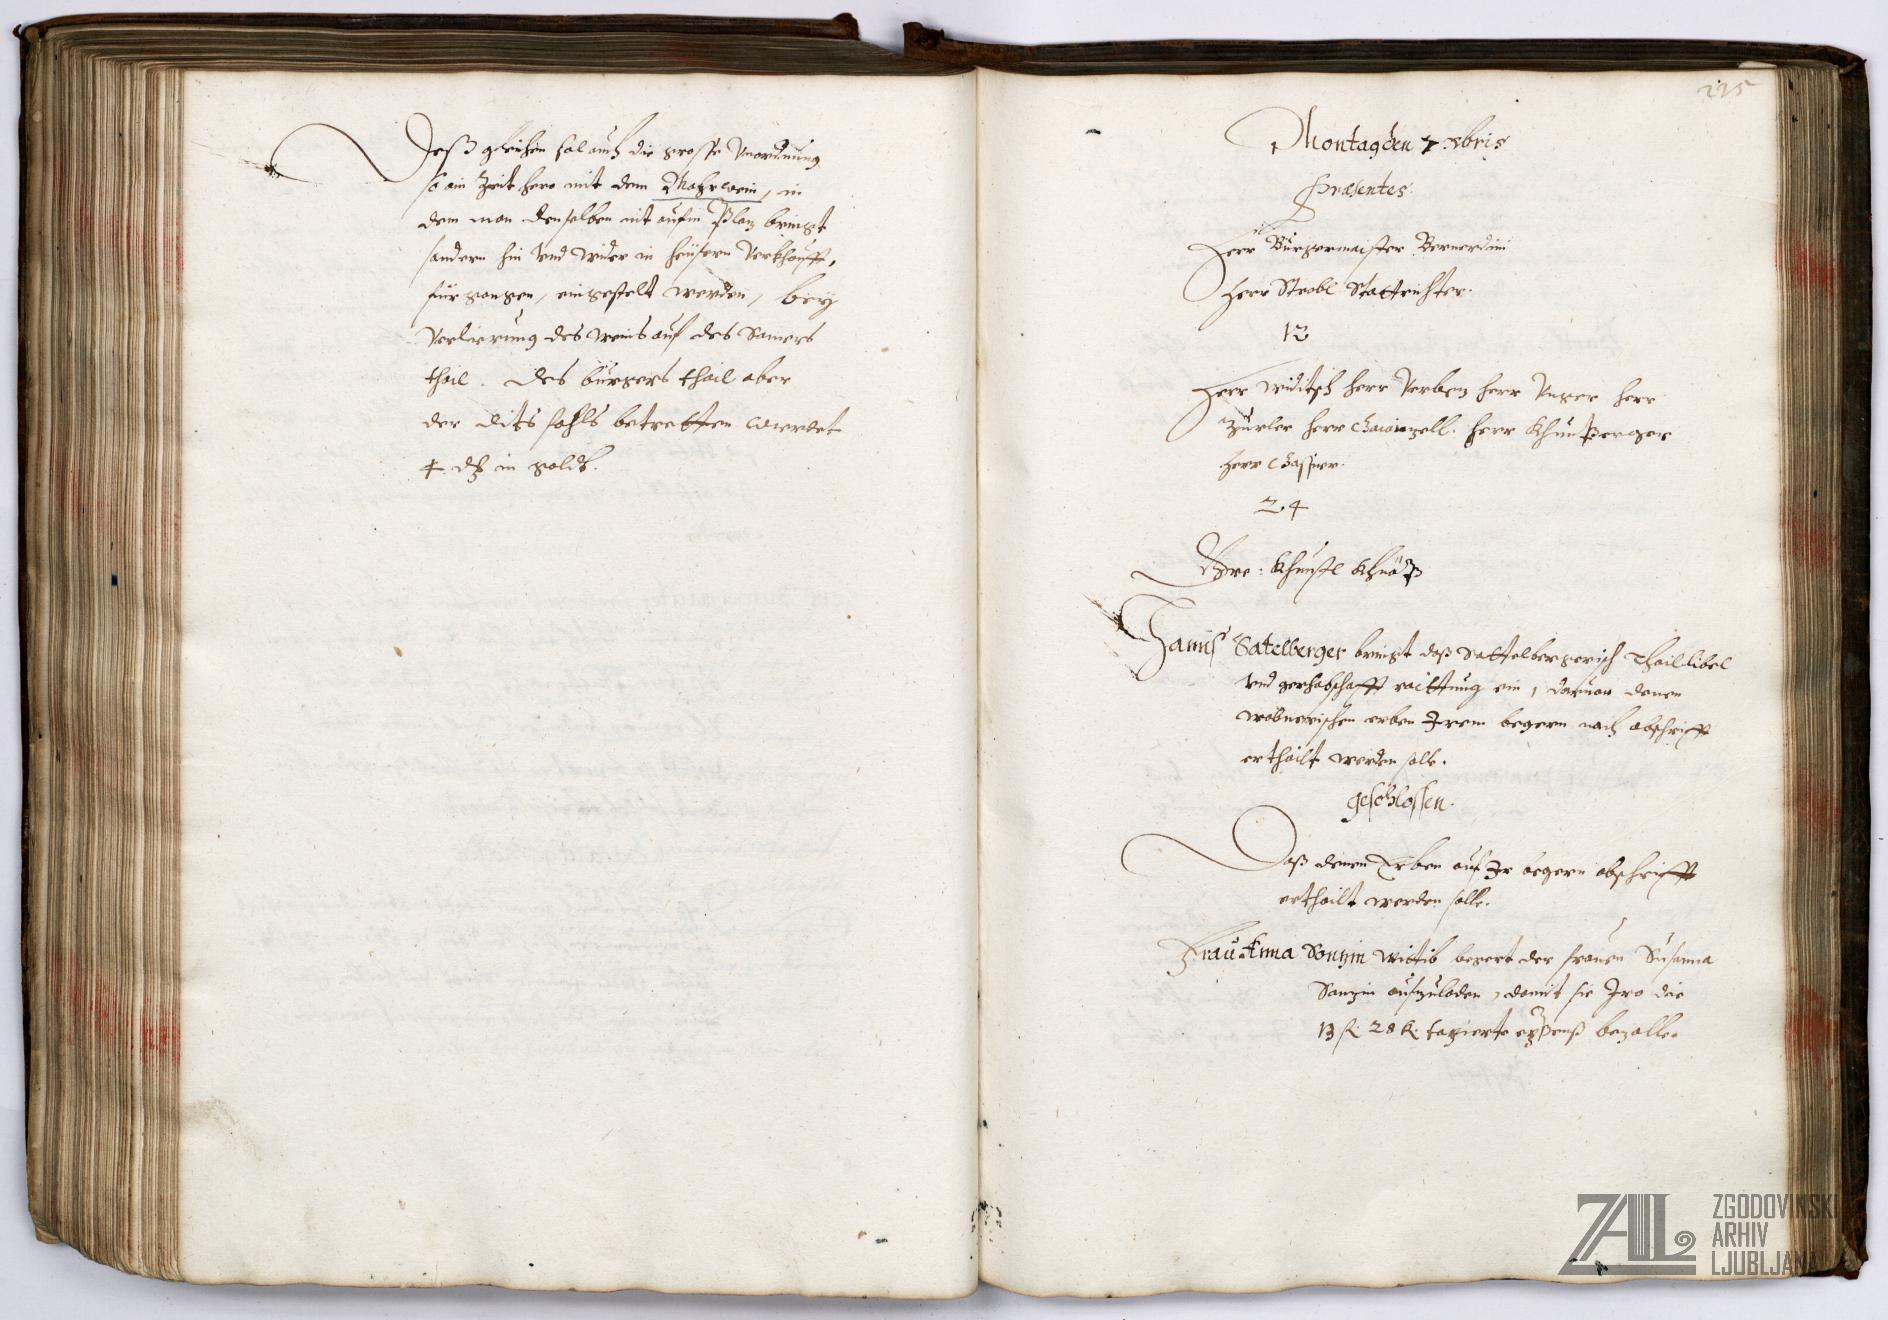 Deß gleichen sol auch die grosse Unordnung
so ein Zeit hero mit dem Mahrwein, in
dem man denselben nit aufm Plaz bringt
sondern hin und wider in heüsern verkhaufft,
fürgangen, eingestelt werden, bey
Verlierung des weins auf des Samers
thail. Des burgers thail aber
der dits fahls betretten werdet
4 in goldt.
225
Montag den 7 Xbris
Præsentes.
Herr Burgermaister Bernardini
Herr Strobl Stattrichter.
12
Herr Widitsch herr Verbez herr Unger herr
herr herr Khunperger
herr
24
Khunstl
Hannß Satelberger bringt daß Sattelbergerisch Thaillibel
und gerhabschafft raittung ein, daruon denen
erben Irem begern nach abschrifft
erthailt werden solle.
geschlossen.
Daß denen Erben auf Ir begern abschrifft
erthailt werden solle.
Frau Anna Sonzin wittib begert der frauen Susanna
Sonzin aufzuladen, damit sie Iro die
13 f. 28 k. taxierte expenß bezalle.
ZAL
ZGODOVINSKI
ARHIV
LJUBLJANA